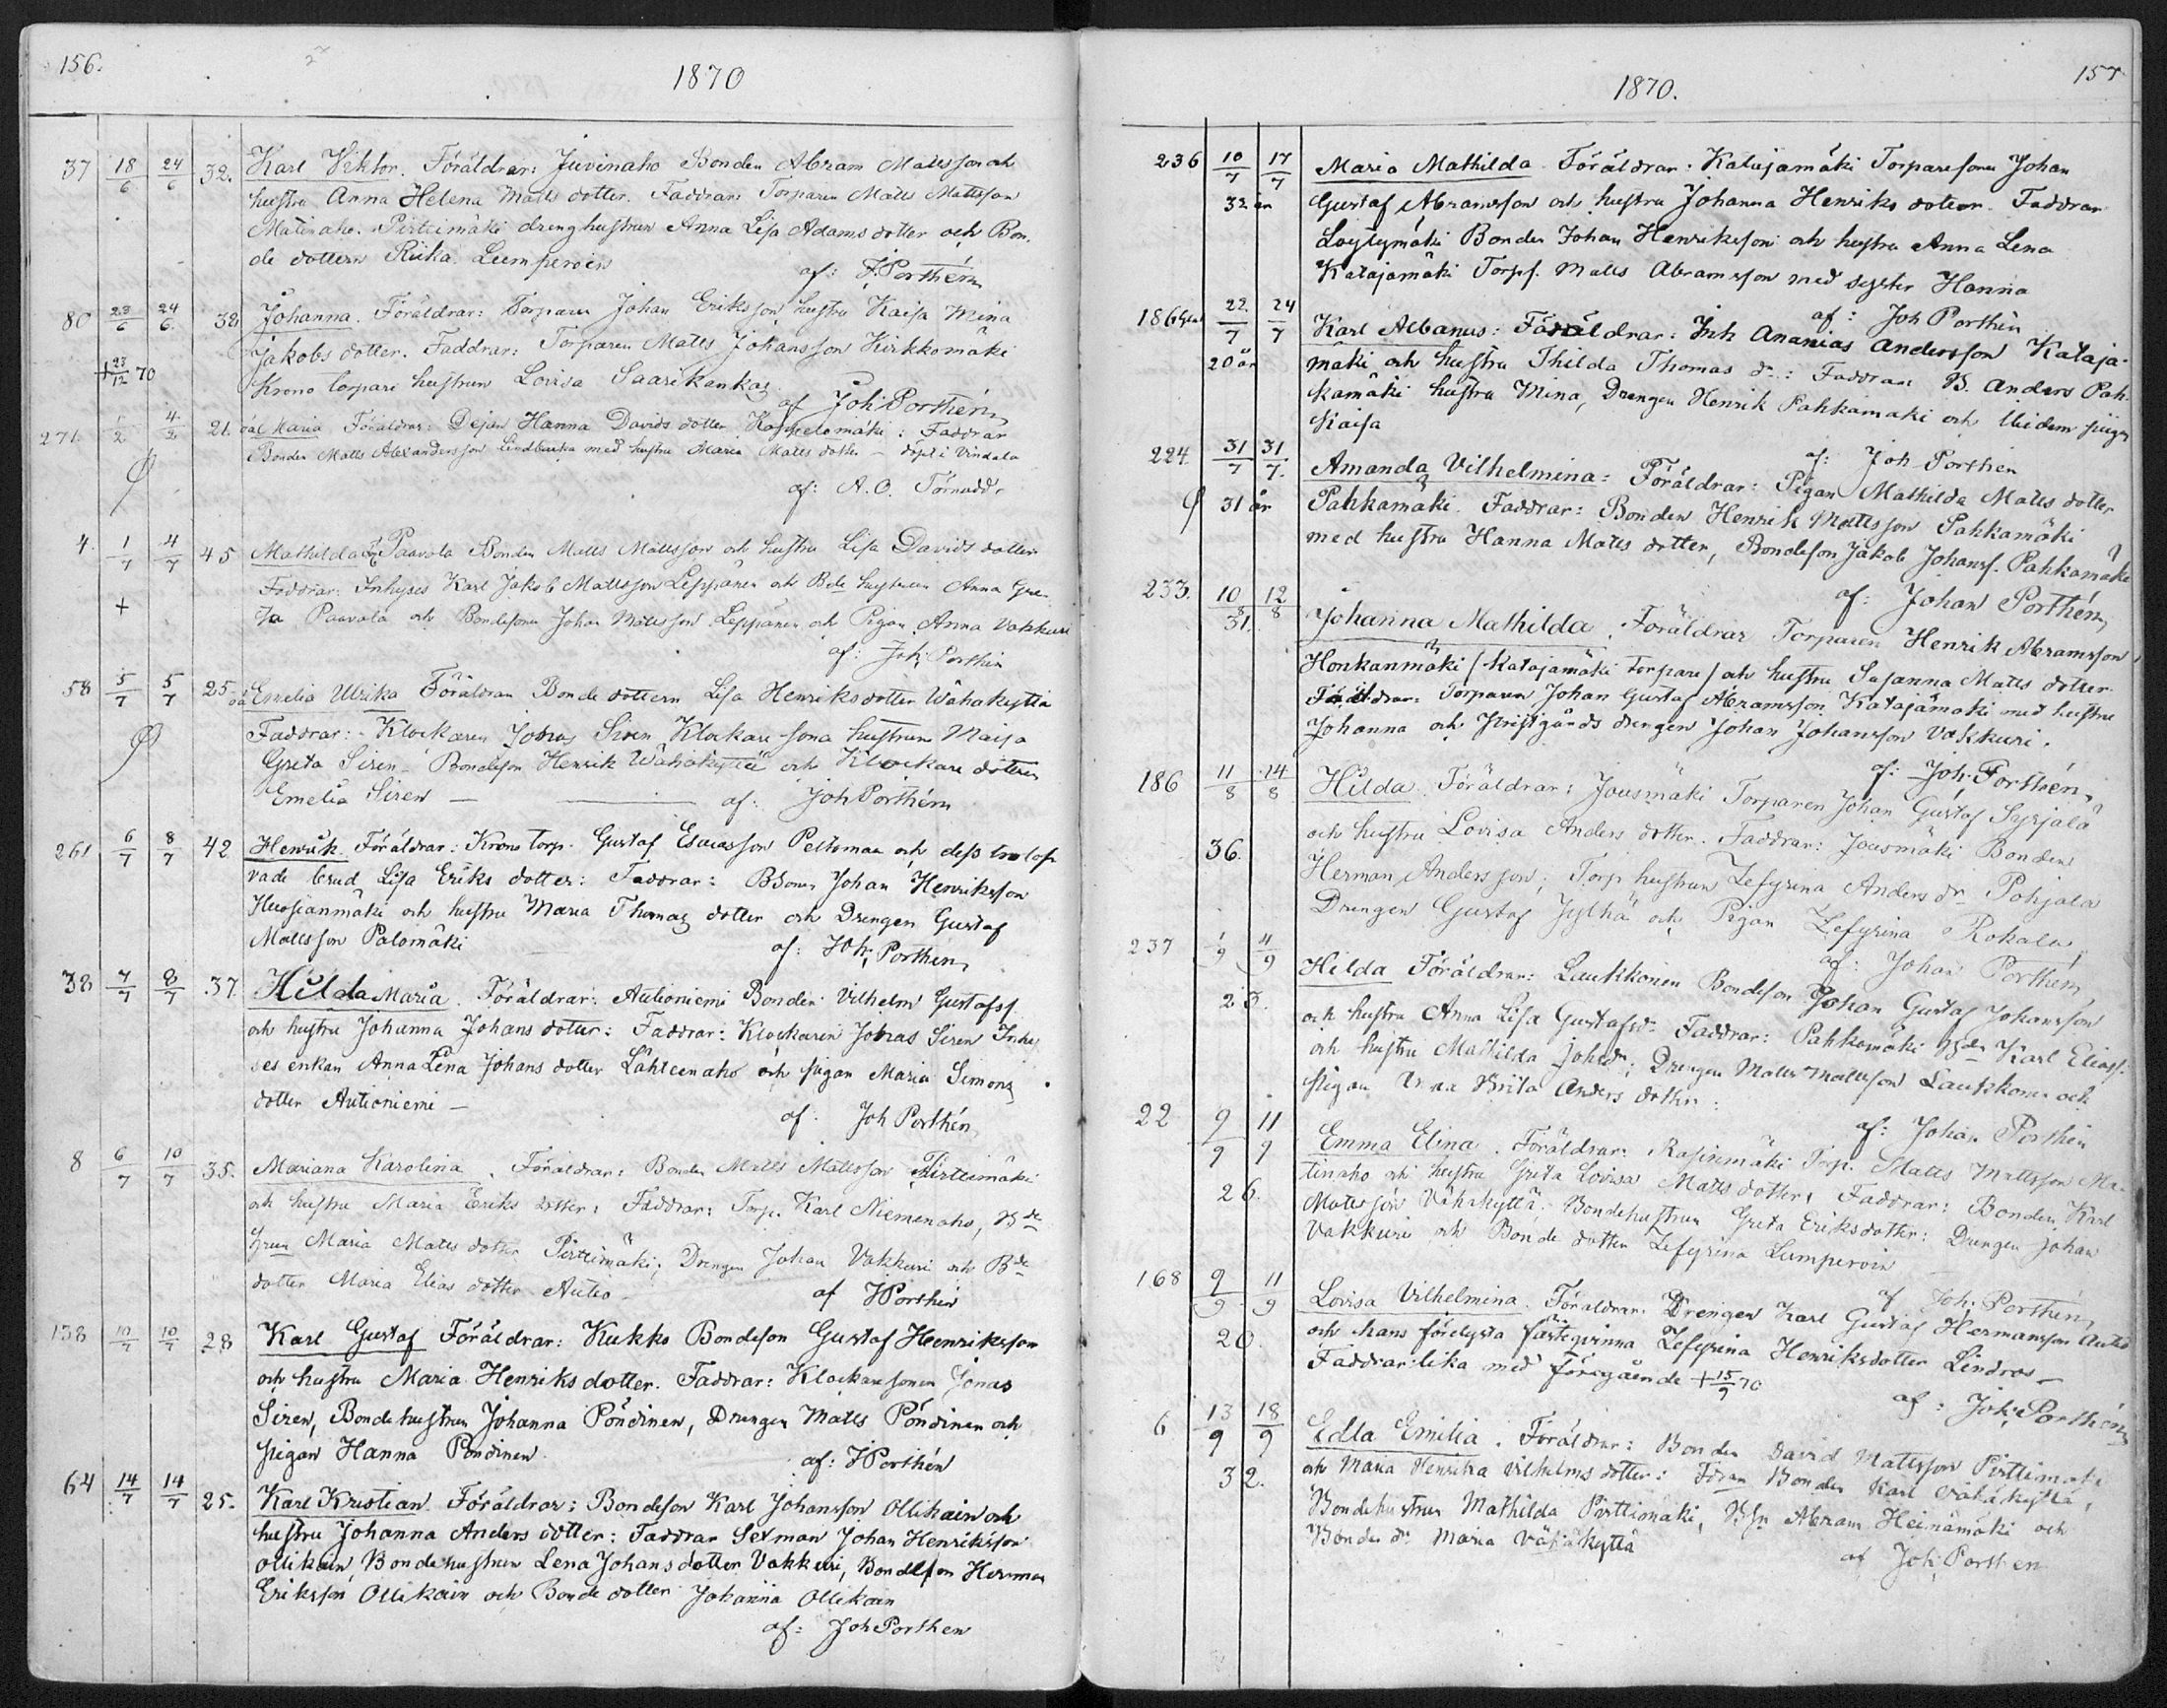 156.
1870
37 18/6 24/6 32. Karl Viktor. Föräldrar: Juvinaho Bonden Abram Mattsson och
hustru Anna Helena Matts dotter. Faddrar: Torparen Matts Mattsson
Matinaho. Pirttimäki drenghustrun Anna Lisa Adams dotter och Bon-
de dottern Riika Lumperoin
af: J. Porthén
80 23/6 24/6. 32 Johanna. Föräldrar: Torparen Johan Eriksson hustru Kaisa Mina
Jakobs dotter. Faddrar: Torparen Matts Johansson Kirkkomäki
+ 23/12 70
Krono torpare hustrun Lovisa Saarikankas
af Joh: Porthén
271. 1/2 4/2 21. oä Maria Föräldrar: Dejan Hanna Davids dotter Koppelomäki: Faddrar
Bonden Matts Alexandersson Lindbacka med hustru Maria Matts dotter – döpt i Vindala
af: A. O. Törnudd.
4. 1/7 4/7 45 Mathilda Paavola Bonden Matts Mattsson och hustru Lisa Davids dotter
Faddrar: Inhyses Karl Jakob Mattsson Leppänen och Bde hustrun Anna Gre-
+
ta Paavola och Bondesonen Johan Mattsson Leppänen och Pigan Anna Vakkuri
af: Joh: Porthén
58 5/7 5/7 25 oä Emelia Ulrika Föräldrar Bonde dottern Lisa Henriksdotter Wähäkyttä
Faddrar: Klockaren Jonas Siren Klockare sons hustrun Maija
Greta Siren – Bondeson Henrik Wähäkyttä och Klockare dottern
Emelia Siren — af: Joh Porthén
261 6/7 8/7 42 Henrik. Föräldrar: Krono torp. Gustaf Esaiasson Peltomaa och dess trolof-
vade brud Lisa Eriks dotter: Faddrar: Bsonen Johan Henriksson
Huosianmäki och hustru Maria Thomas dotter och Drengen Gustaf
Mattsson Palomäki
af: Joh: Porthén
38 7/7 8/7 37 Hilda Maria. Föräldrar: Autioniemi Bonden Vilhelm Gustafss.
och hustru Johanna Johans dotter: Faddrar: Klockaren Jonas Siren Inhy
ses enkan Anna Lena Johans dotter Lähteenaho och pigan Maria Simons
dotter Autioniemi –
af: Joh Porthén
8 6/7 10/7 35. Mariana Karolina. Föräldrar: Bonden Matts Mattsson Pirttimäki
och hustru Maria Eriks dotter: Faddrar: Torp. Karl Niemenaho, Bde
hrun Maria Matts dotter Pirttimäki; Drengen Johan Vakkuri och Bde
dotter Maria Elias dotter Autio
af J Porthén
138 10/7 10/7 28 Karl Gustaf Föräldrar: Kukko Bondeson Gustaf Henriksson
och hustru Maria Henriks dotter. Faddrar: Klockaresonen Jonas
Siren, Bondehustrun Johanna Pöndinen, Drengen Matts Pöndinen och
pigan Hanna Pöndinen
af: J Porthén
64 14/7 14/7 25. Karl Kristian. Föräldrar: Bondeson Karl Johansson Ollikain och
hustru Johanna Anders dotter: Faddrar Sexman Johan Henriksson
Ollikain, Bondehustrun Lena Johans dotter Vakkuri, Bondeson Herman
Eriksson Ollikain och Bonde dotter Johanna Ollikain
af: Joh Porthen
157
1870.
236 10/7 17/7 Maria Mathilda Föräldrar: Katajamäki Torparesonen Johan
32 år Gustaf Abramsson och hustru Johanna Henriks dotter. Faddrar
Löytymäki Bonden Johan Henriksson och hustru Anna Lena
Katajamäki Torps. Matts Abramsson med syster Hanna
af: Joh Porthén
186 22/7 24/7 Karl Albanus: Föräldrar: Inh Ananias Andersson Kataja-
20 år mäki och hustru Thilda Thomas dr: Faddrar B. Anders Pah-
kamäki hustru Mina, Drengen Henrik Pahkamäki och pigan
Kaisa
af: Joh Porthen
224. 31/7 31/7. Amanda Vilhelmina: Föräldrar: Pigan Mathilda Matts dotter
31 år Pahkamäki. Faddrar: Bonden Henrik Mattsson Pahkamäki
med hustru Hanna Matts dotter, Bondeson Jakob Johanss. Pahkamäki
af: Johan Porthén
233. 10/8 12/8 Johanna Mathilda. Föräldrar Torparen Henrik Abramsson
31. Honkanmäki (Katajamäki torpare) och hustru Susanna Matts dotter
Faddrar: Torparen Johan Gustaf Abramsson Katajamäki med hustru
Johanna och Prestgårds drengen Johan Johansson Vakkuri.
af: Joh: Porthén
186 11/8 14/8 Hilda. Föräldrar: Jousmäki Torparen Johan Gustaf Syrjälä
och hustru Lovisa Anders dotter. Faddrar: Jousmäki Bonden
36. Herman Andersson; Torp hustrun Zefyrina Anders dr Pohjala
Drengen Gustaf Jylhä och Pigan Zefyrina Rokala
af: Johan Porthén
237 1/9 4/9 Hilda Föräldrar: Laukkonen Bondeson Johan Gustaf Johansson
25. och hustru Anna Lisa Gustafsdr Faddrar: Pahkamäki Bde Karl Eliass.
och hustru Mathilda Johsdr; Drengen Matts Mattsson Laukkonen och
pigan Anna Brita Anders dotter:
af: Johan Porthén
22 9/9 11/9 Emma Elina. Föräldrar: Rasinmäki Torp. Matts Mattsson Ma-
tinaho och hustru Greta Lovisa Matts dotter: Faddrar: Bonden Karl
26. Mattsson Vähäkyttä. Bondehustrun Greta Eriksdotter: Drengen Johan
Vakkuri och Bonde dotter Zefyrina Lumperoin
af Joh: Porthén
168 9/9 11/9 Lovisa Vilhelmina. Föräldrar: Drengen Karl Gustaf Hermansson Autio
20. och hans förelysta fästeqvinna Zefyrina Henriksdotter Lindros –
Faddrar lika med föregående + 15/9 70
af: Joh: Porthén
6 13/9 18/9 Edla Emilia. Föräldrar: Bonden David Mattsson Pirttimäki
32. och Maria Henrika Vilhelms dotter: Bonden Karl Vähäkyttä,
Bondehustrun Mathilda Pirttimäki, Abram Heinämäki och
Bonde dr Maria Vähäkyttä
af Joh: Porthen